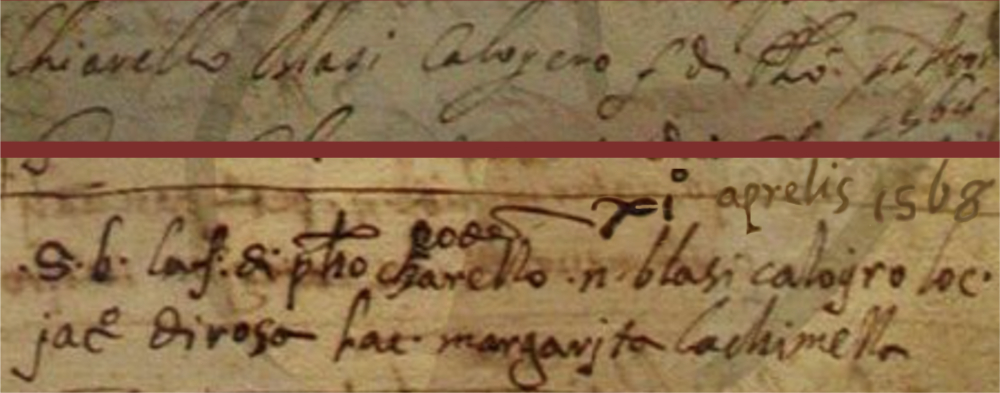 Chiarello blasi Calogero f di Pho
1568
xi° aprelis 1568
eode
.S. b. la f. di pho chiarello .n. blasi calogro loc.
jac° di rosa hac margarita lachimella